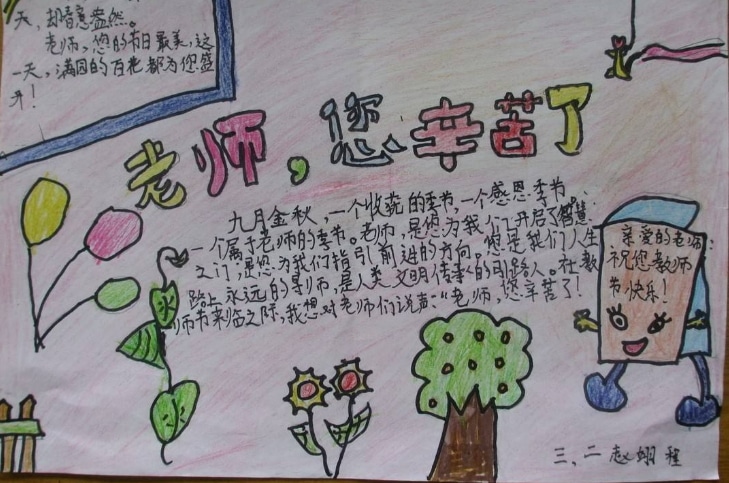 天，却春意盎然。
老师，您的节日最美，这
一天，满园的百花都为您盛
开！
老师，您辛苦了
九月金秋，一个收获的季节，一个感恩季节，
一个属于老师的季节。老师，是您为我们开启了智慧
之门，是您为我们指引前进的方向。您是我们人生
路上永远的导师，是人类文明传承的引路人。在教
师节来临之际，我想对老师们说声：“老师，您辛苦了！
亲爱的老师：
祝您教师
节快乐！
三、二 赵翊程